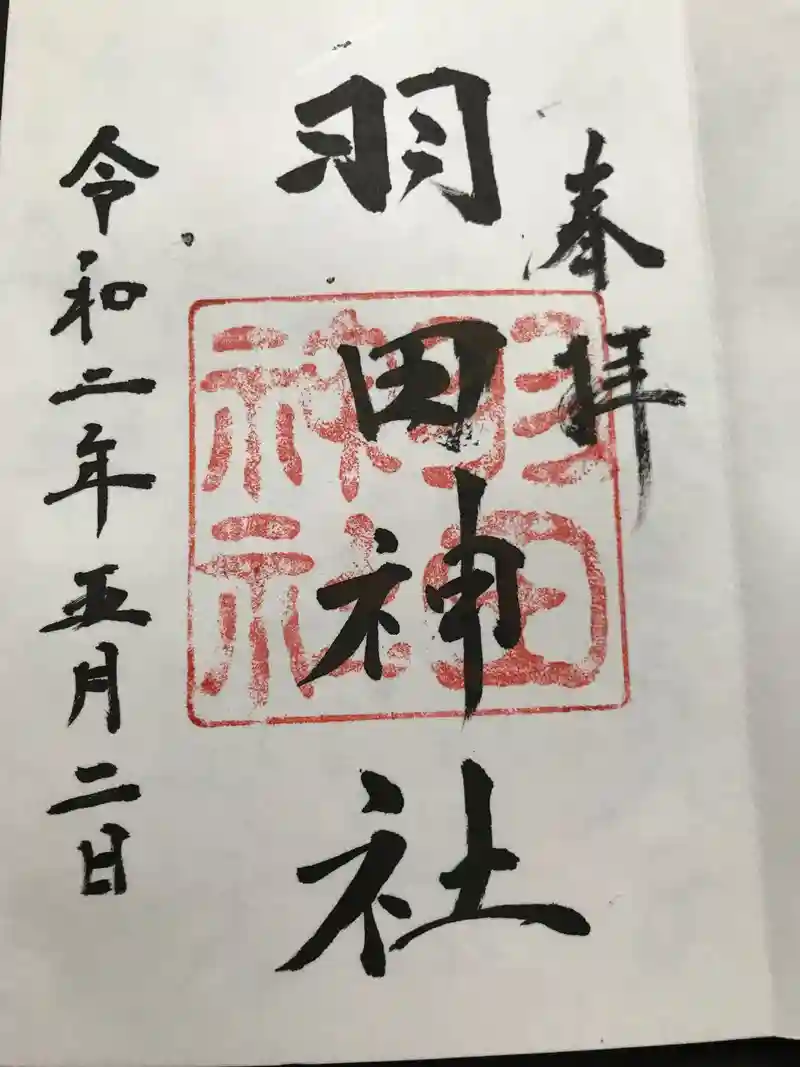 奉拝
羽田神社
羽田神社
令和二年五月二日